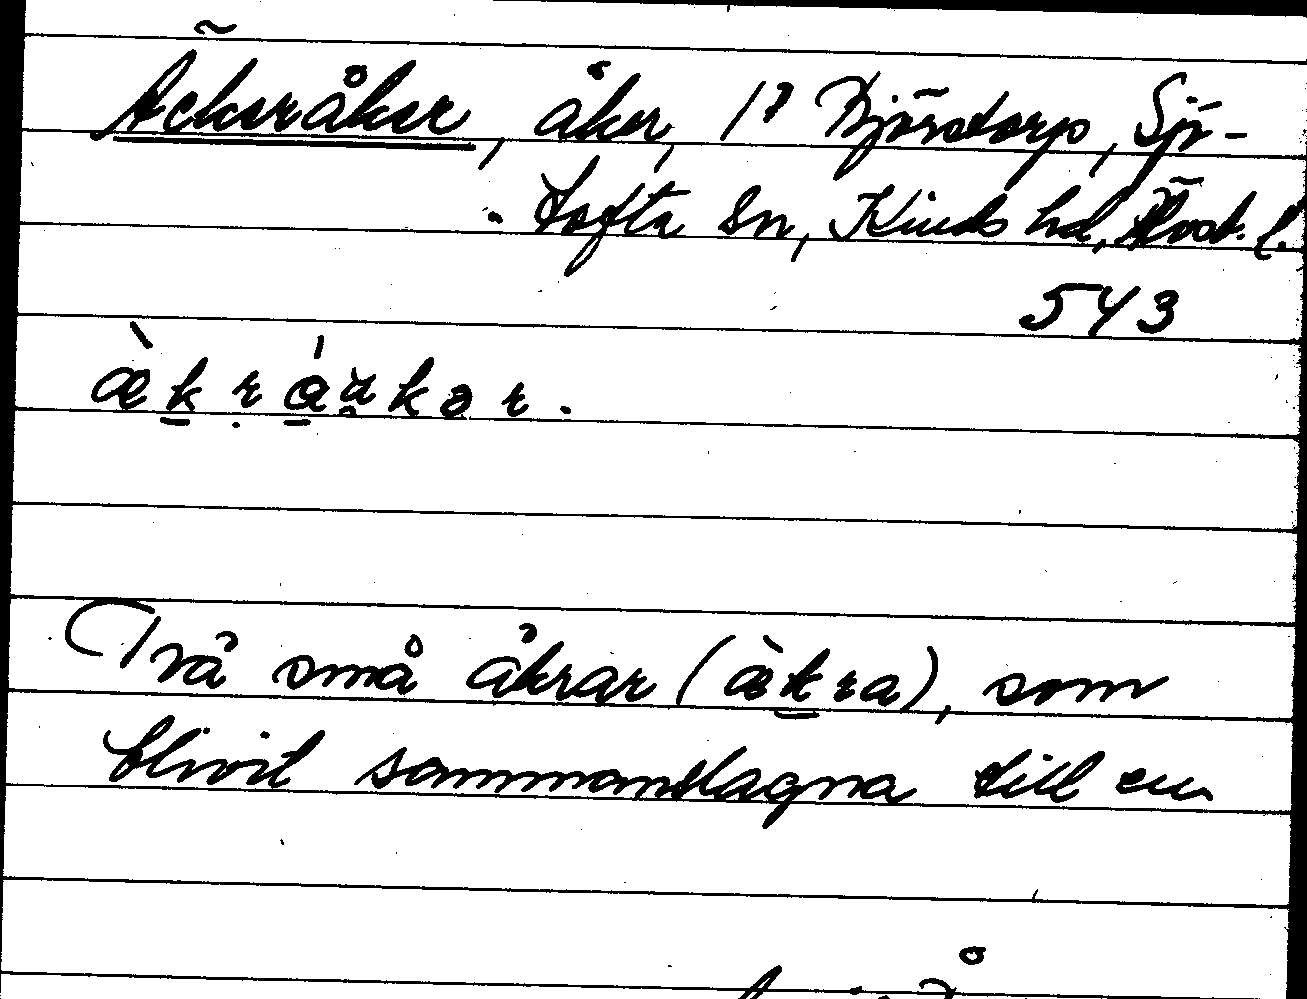 Äckeråker, åker, 1⁹ Björstorp, Sjö-
tofta sn, Kinds hd, Älvsb. l.
543
æ̀kráakər.
Två små åkrar (æ̀kra), som
blivit sammanslagna till en